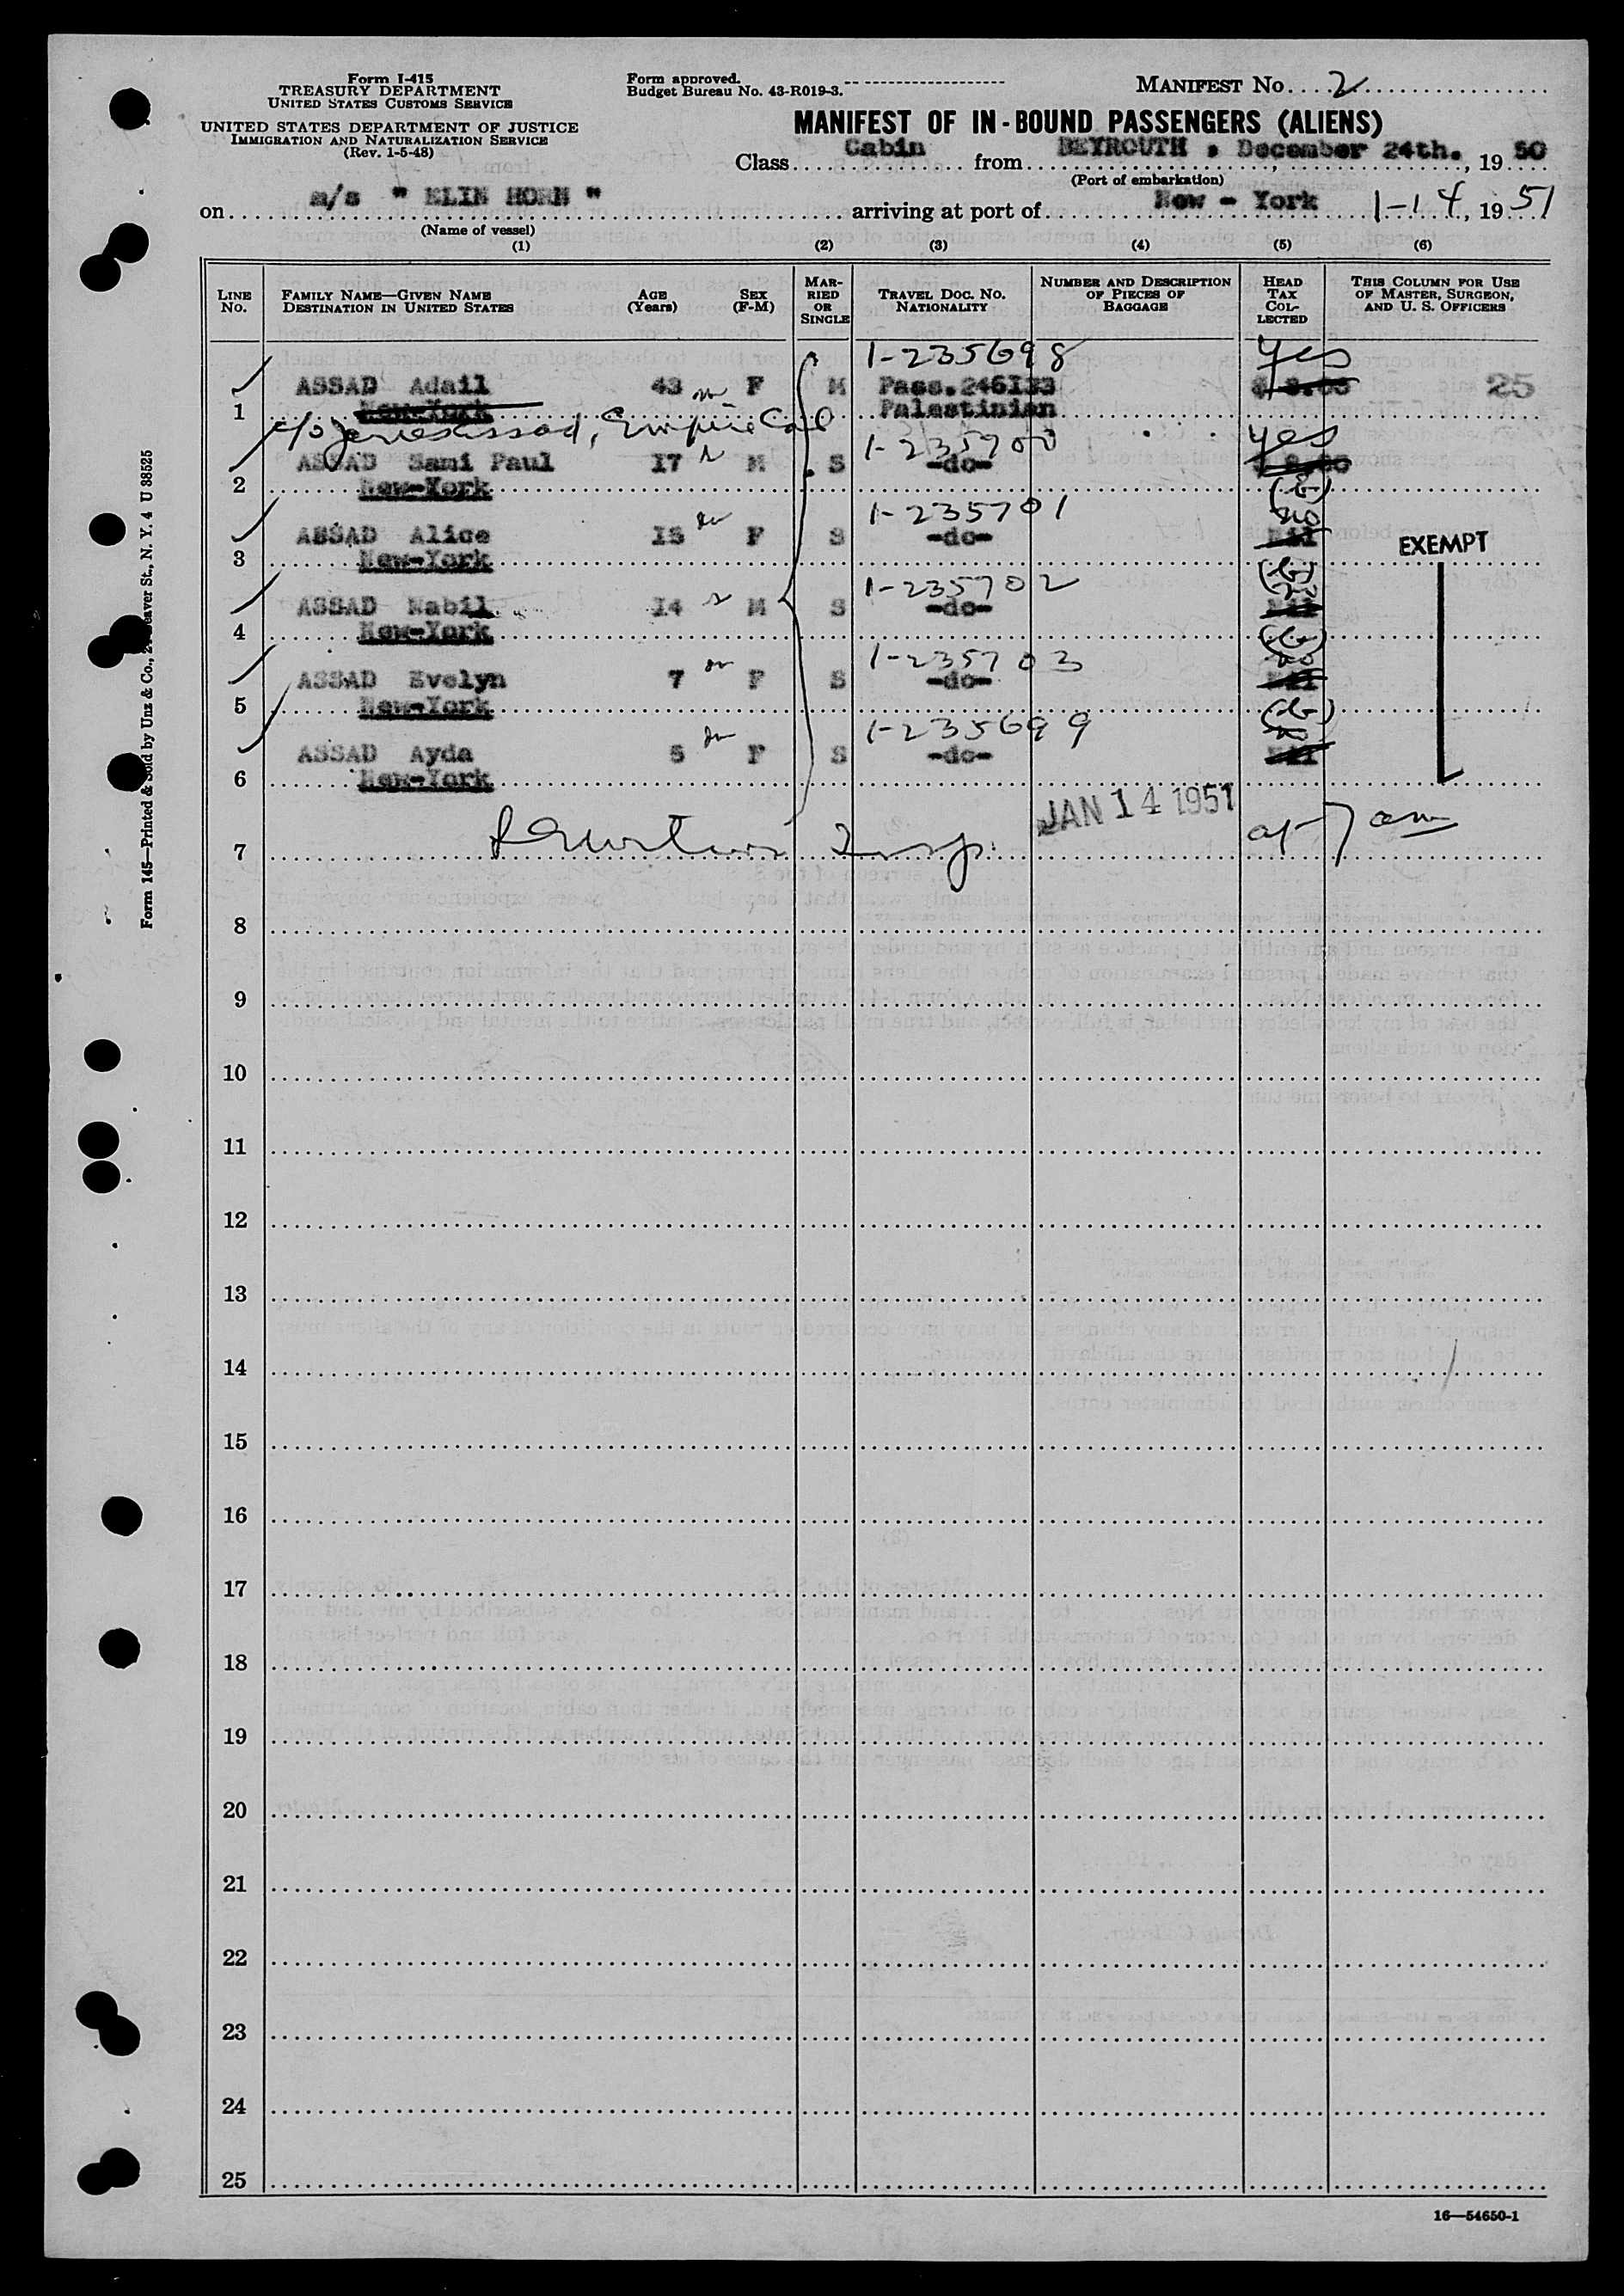 Form I-415
TREASURY DEPARTMENT
UNITED STATES CUSTOMS SERVICE
UNITED STATES DEPARTMENT OF JUSTICE
IMMIGRATION AND NATURALIZATION SERVICE
(Rev. 1-5-48)
Form approved.
Budget Bureau No. 43-R019-3.
MANIFEST No. 2
MANIFEST OF IN-BOUND PASSENGERS (ALIENS)
Class Cabin from BEYROUTH, December 24th., 19 50
(Port of embarkation)
on m/s " ELIN HORN " arriving at port of New - York 1-14, 19 51
(Name of vessel)
(1) (2) (3) (4) (5) (6)
LINE No. FAMILY NAME—GIVEN NAME DESTINATION IN UNITED STATES AGE (Years) SEX (F-M) MARRIED OR SINGLE TRAVEL DOC. NO. NATIONALITY NUMBER AND DESCRIPTION OF PIECES OF BAGGAGE HEAD TAX COLLECTED THIS COLUMN FOR USE OF MASTER, SURGEON, AND U. S. OFFICERS
1-235698 yes
ASSAD Adail 43 F M Pass.246133 $ 8.00 25
1 New-York Palestinian
c/o James Assad, Empire Cal 1-235700 yes
ASSAD Sami Paul 17 M S -do- $ 8.00
2 New-York
1-235701 no
ASSAD Alice 15 F S -do- Nil EXEMPT
3 New-York
1-235702 no
ASSAD Nabil 14 M S -do- Nil
4 New-York
1-235703 no
ASSAD Evelyn 7 F S -do- Nil
5 New-York
1-235699 no
ASSAD Ayda 5 F S -do- Nil
6 New-York
JAN 14 1951
7 Insp. at 7 am
8
9
10
11
12
13
14
15
16
17
18
19
20
21
22
23
24
25
16—54650-1
Form 145—Printed & Sold by Unz & Co., 24 Beaver St., N. Y. 4 U 38525